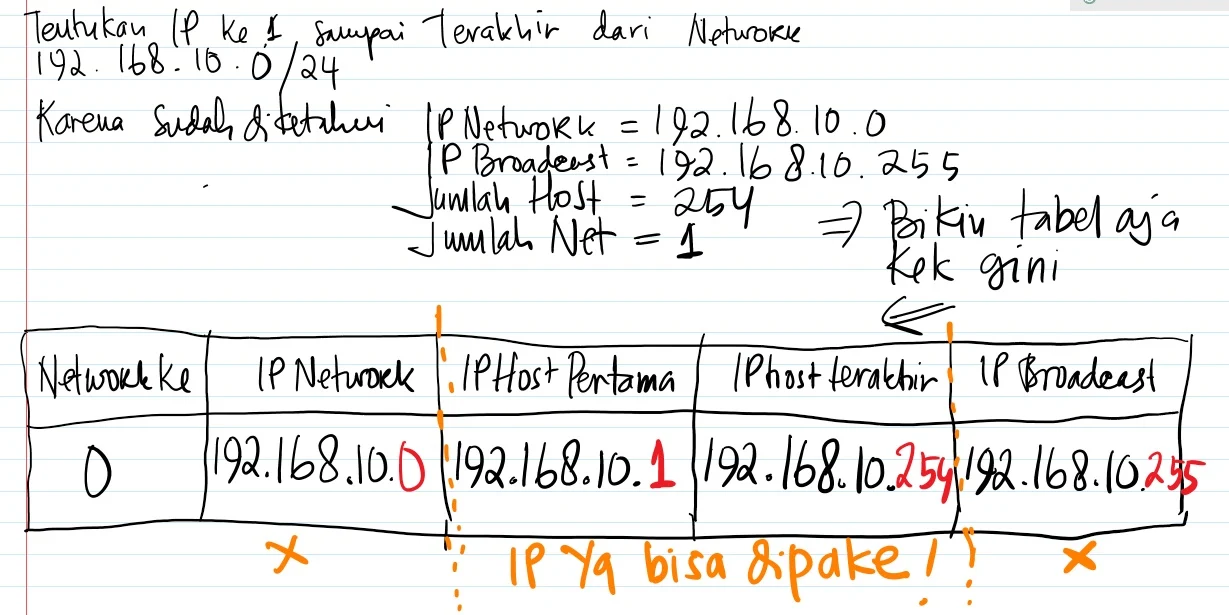 Tentukan IP ke 1 sampai Terakhir dari Network
192.168.10.0/24
Karena sudah diketahui
IP Network = 192.168.10.0
IP Broadcast = 192.168.10.255
Jumlah Host = 254
Jumlah Net = 1
=> Bikin tabel aja
kek gini
Network ke IP Network IP Host Pertama IP host terakhir IP Broadcast
0 192.168.10.0 192.168.10.1 192.168.10.254 192.168.10.255
x IP Yg bisa dipake! x